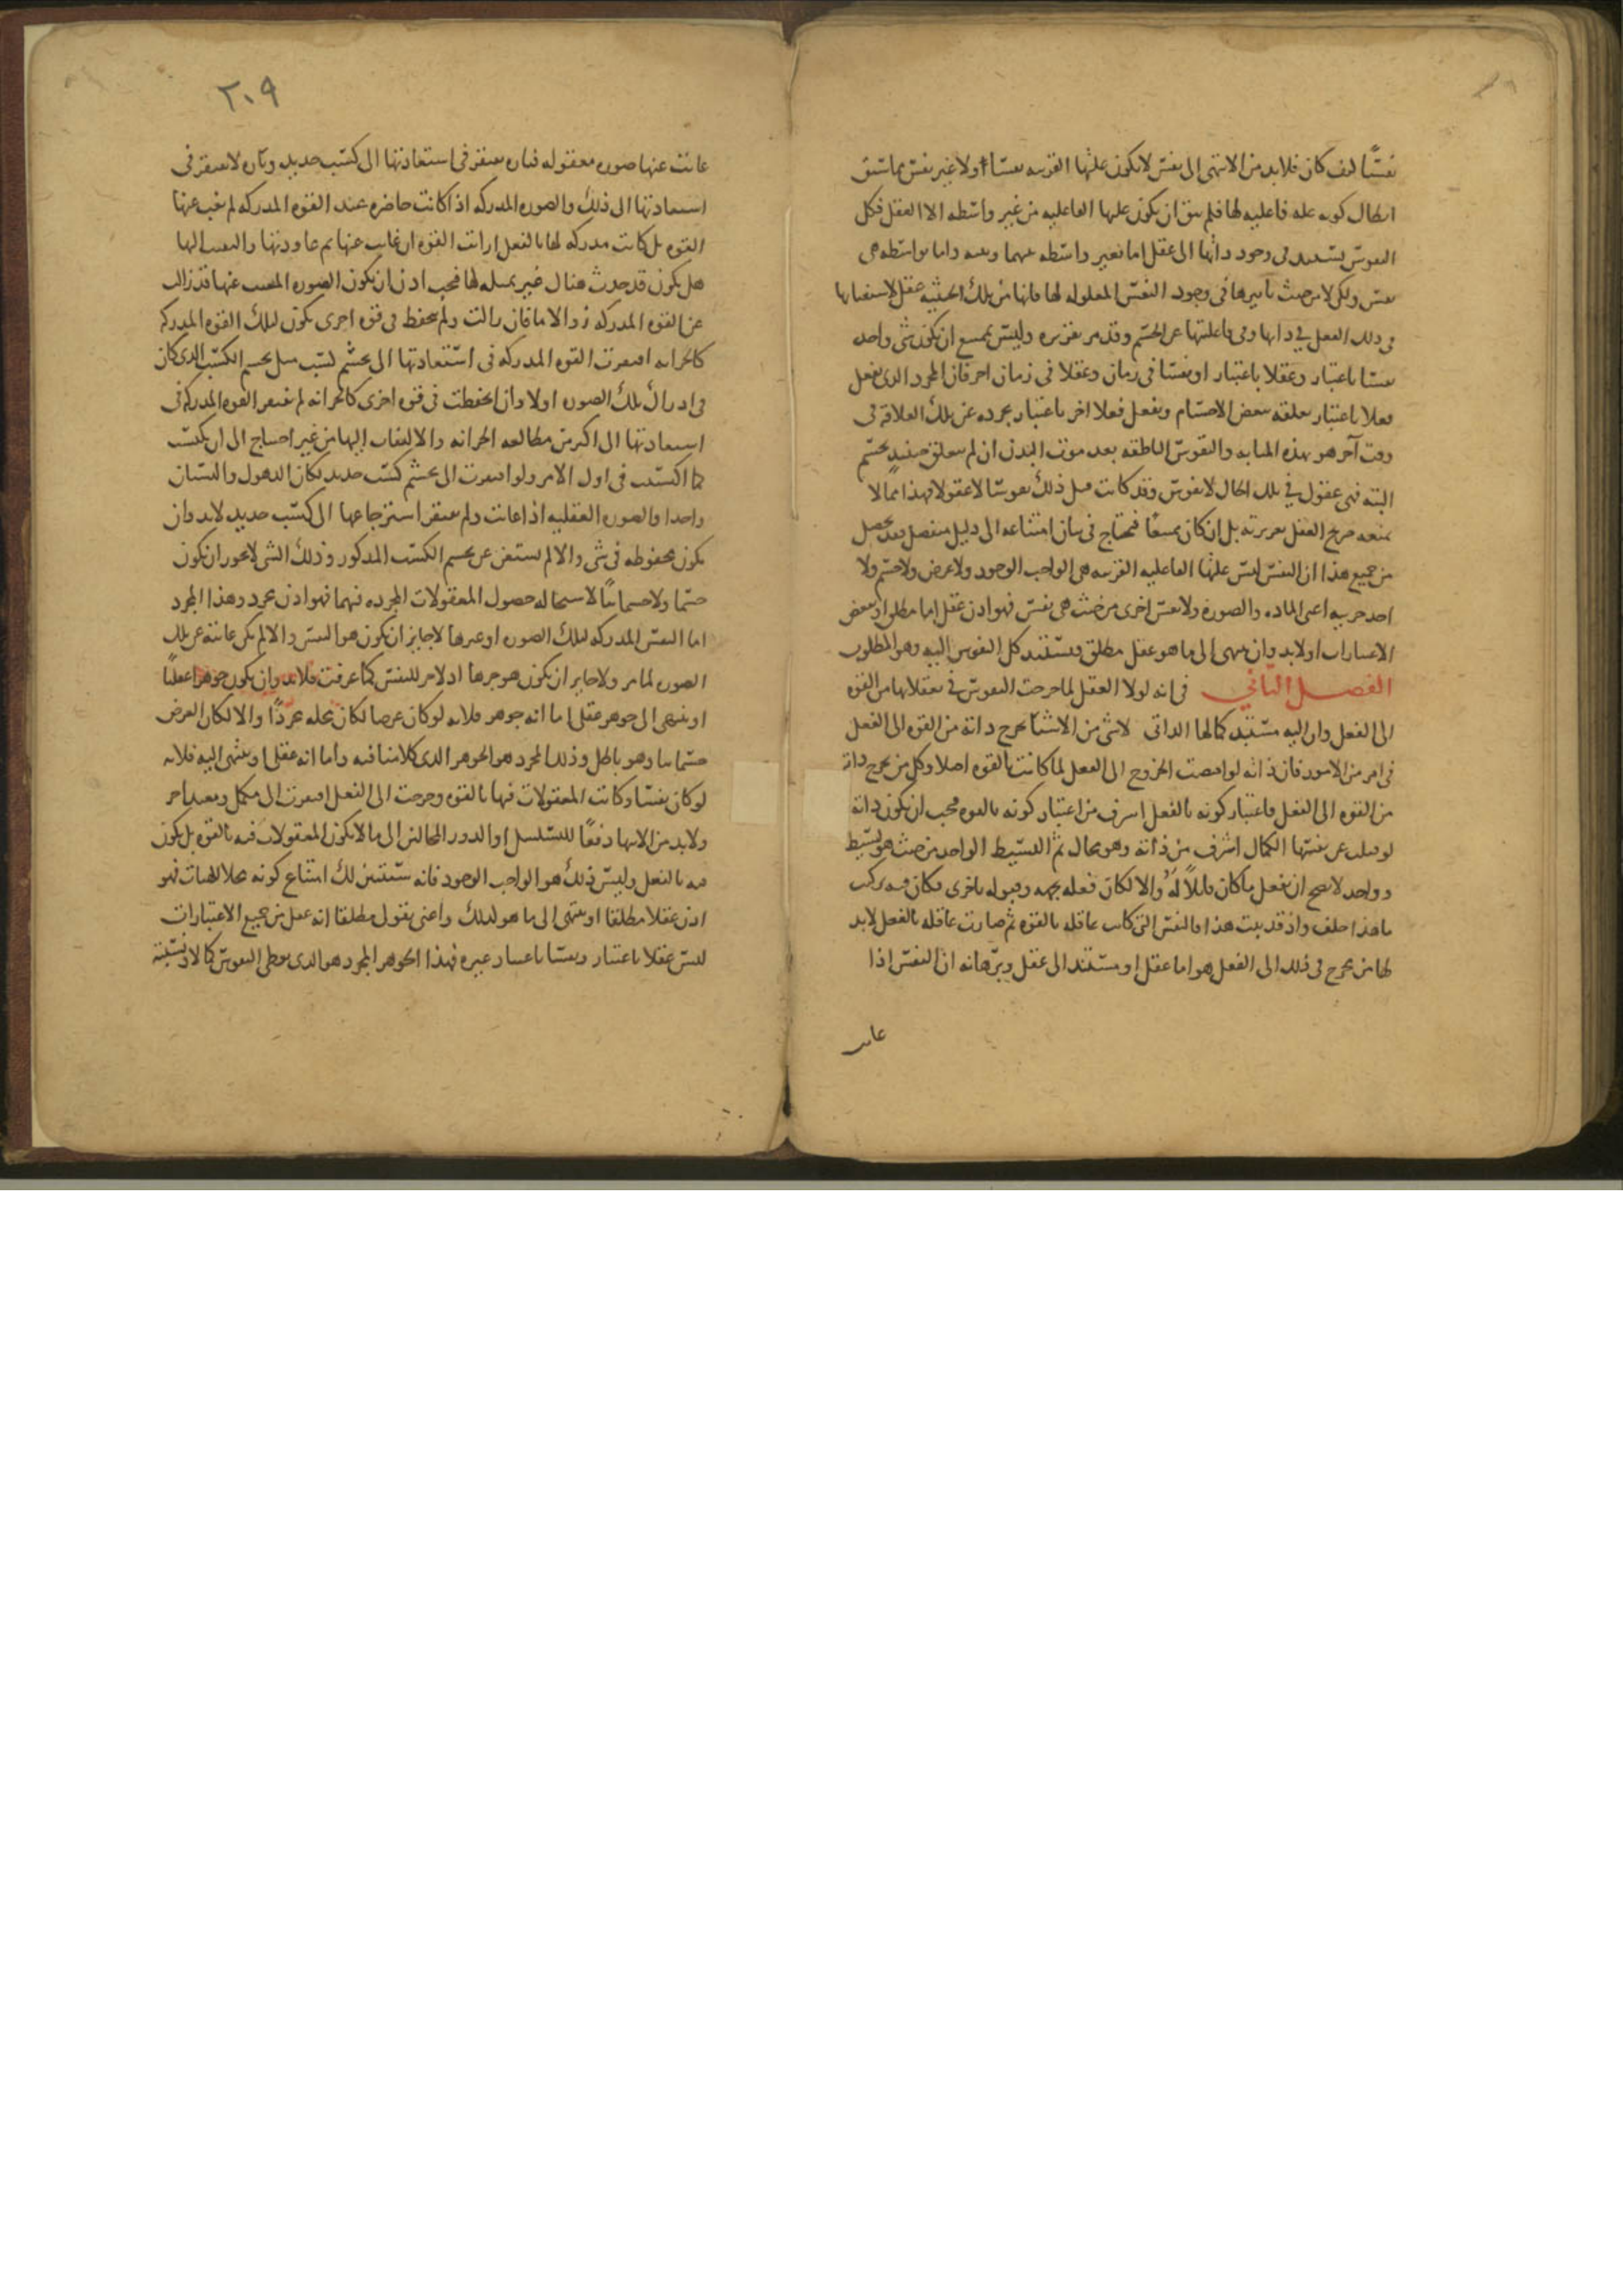 نفسًا كيف كان فلابد من الانتهى الى نفس لا تكون علتها القريبه نفسا اولا غير نفس بما سبق
ابطال كونه عله فاعليه لها فلم يبق ان يكون علتها الفاعليه من غير واسطه الا العقل فكل
النفوس يستند فى وجود ذاتها الى عقل اما بغير واسطه بينهما وبينه واما بواسطه هى
نفس ولكن لا من حيث تاثيرها فى وجود النفس المعلوله لها فانها من تلك الحيثيه عقل لاستغنايها
فى ذلك الفعل في ذاتها وفى فاعليتها عن الجسم وقد مر تقريره وليس يمتنع ان يكون شى واحد
نفسا باعتبار وعقلا باعتبار او نفسا فى زمان وعقلا فى زمان اخر فان المجرد الذى يفعل
فعلا باعتبار تعلقه ببعض الاجسام ويفعل فعلا اخر باعتبار تجرده عن تلك العلاقه فى
وقت آخر هو بهذه المثابه والنفوس الناطقه بعد موت البدن ان لم يتعلق حينيذ بجسم
البته فهى عقول في تلك الحال لا نفوس وقد كانت قبل ذلك نفوسا لا عقولا فهذا مما لا
يمنعه صريح العقل بغريزته بل ان كان ممتنعًا فيحتاج فى بيان امتناعه الى دليل منفصل فقد حصل
من جميع هذا ان النفس ليس علتها الفاعليه القريبه هى الواجب الوجود ولا عرض ولا جسم ولا
احد جزييه اعنى الماده والصورة ولا نفس اخرى من حيث هى نفس فهو اذن عقل اما مطلق او ببعض
الاعتبارات ولا بد وان ينتهى الى ما هو عقل مطلق فيستند كل النفوس اليه وهو المطلوب
الفصل الثاني فى انه لولا العقل لما خرجت النفوس في تعقلاتها من القوه
الى الفعل وان اليه مستند كمالها الذاتى لا شى من الاشيا يخرج ذاته من القوه الى الفعل
فى امر من الامور فان ذاته لو اقتضت الخروج الى الفعل لما كانت بالقوه اصلا وكل من يخرج ذاته
من القوه الى الفعل فاعتبار كونه بالفعل اشرف من اعتبار كونه بالقوه فيجب ان يكون ذاته
لو قبلت عن نفسها الكمال اشرف من ذاته وهو محال ثم البسيط الواحد من حيث هو بسيط
وواحد لا يصح ان يفعل ما كان قابلاً له والا لكان فعله بجهه وقبوله باخرى فكان فيه تركب
ما هذا خلف واذ قد ثبت هذا فالنفس التى كانت عاقله بالقوه ثم صارت عاقله بالفعل لابد
لها من مخرج فى ذلك الى الفعل هو اما عقل او مستند الى عقل وبرهانه ان النفس اذا
غابت
٢٠٩
غابت عنها صوره معقوله فتاره تفتقر فى استعادتها الى كسب جديد وتاره لا تفتقر فى
استعادتها الى ذلك والصوره المدركه اذا كانت حاضره عند القوه المدركه لم تغب عنها
القوه بل كانت مدركه لها بالفعل ارات القوه ان غابت عنها ثم عاودتها والتفتت اليها
هل يكون قد حدث هناك غير تمثله لها فيجب اذن ان يكون الصوره المغيب عنها قد زالت
عن القوه المدركه زوالا ما فان زالت ولم تحفظ فى قوه اخرى تكون لتلك القوه المدركه
كالخزانه افتقرت القوه المدركه فى استعادتها الى تجشم كسب مثل تجشم الكسب الذى كان
فى ادراك تلك الصوره اولا وان انحفظت فى قوه اخرى كالخزانه لم تفتقر القوه المدركه فى
استعادتها الى اكثر من مطالعه الخزانه والالتفات اليها من غير احتياج الى ان تكتسب
كما اكتسبت فى اول الامر ولو افتقرت الى تجشم كسب جديد لكان الذهول والنسيان
واحدا والصوره العقليه اذا غابت ولم تفتقر استرجاعها الى كسب جديد لابد وان
تكون محفوظه فى شى والا لم يستغن عن تجشم الكسب المذكور وذلك الشى لا يجوز ان يكون
جسما ولا جسمانيًا لاستحاله حصول المعقولات المجرده فيهما فهو اذن مجرد وهذا المجرد
اما النفس المدركه لتلك الصوره او غيرها لا جايز ان يكون هو النفس والا لم تكن غايبة عن تلك
الصوره لما مر ولا جايز ان يكون هو جزها اذ لا جز للنفس كما عرفت فلابد وان يكون جوهرا عقليًا
او ينتهى الى جوهر عقلى اما انه جوهر فلانه لو كان عرضا لكان محله مجردًا والا لكان العرض
جسمانيا وهو باطل وذلك المجرد هو الجوهر الذى كلامنا فيه واما انه عقلى او ينتهى اليه فلانه
لو كان نفسا وكانت المعقولات فيها بالقوه وخرجت الى الفعل افتقرت الى مكمل ومفيد اخر
ولابد من الانتها دفعًا للتسلسل او الدور المحالين الى ما لا يكون المعقولات فيه بالقوه بل يكون
فيه بالفعل وليس ذلك هو الواجب الوجود فانه ستتبين لك امتناع كونه محلا للهيات فهو
اذن عقلا مطلقا او ينتهى الى ما هو كذلك واعنى بقولى مطلقا انه عقل من جميع الاعتبارات
ليس عقلا باعتبار ونفسا باعتبار غيره فهذا الجوهر المجرد هو الذى يعطى النفوس كمالا ونسبته